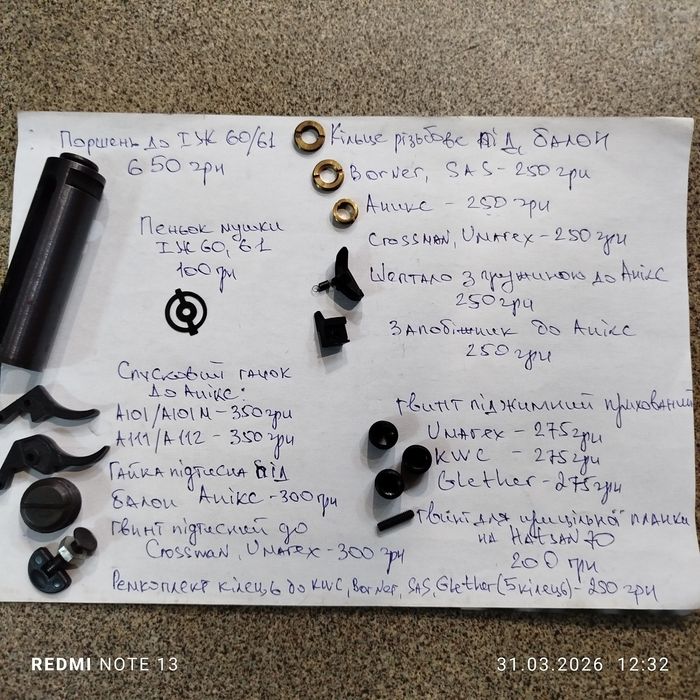 Поршень до ІЖ 60/61
650 грн
Пеньок мушки
ІЖ 60, 61
100 грн
Спусковий гачок
до Анікс:
А101/А101М - 350 грн
А111/А112 - 350 грн
Гайка підтисна під
балон Анікс - 300 грн
Гвинт підтисний до
Crossman, Umarex - 300 грн
Ремкоплект кілець до KWC, Borner, SAS, Glether (5 кілець) - 250 грн
Кільце різьбове під балон
Borner, SAS - 250 грн
Аникс - 250 грн
Crossman, Umarex - 250 грн
Шептало з пружиною до Анікс
250 грн
Запобіжник до Анікс
250 грн
Гвинт піджимний прихований
Umarex - 275 грн
KWC - 275 грн
Glether - 275 грн
Гвинт для прицільної планки
на Hatsan 70
200 грн
REDMI NOTE 13
31.03.2026 12:32